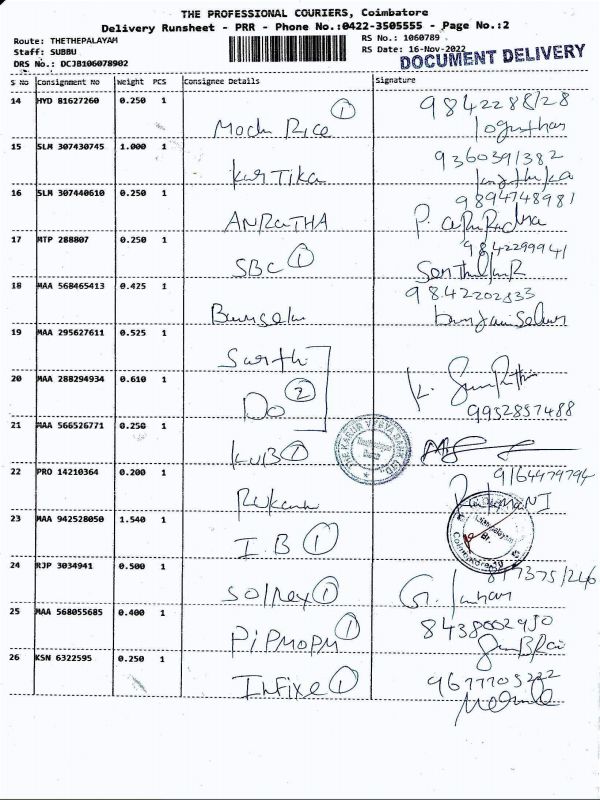 THE PROFESSIONAL COURIERS, Coimbatore
Delivery Runsheet - PRR - Phone No.:0422-3505555 - Page No.:2
Route: THETHEPALAYAM
Staff: SUBBU
DRS No.: DCJB106078902
RS No.: 1060789
RS Date: 16-Nov-2022
DOCUMENT DELIVERY
S No Consignment No Weight PCS Consignee Details Signature
14 HYD 81627260 0.250 1
Mochi Rice 1
9842288128
15 SLM 307430745 1.000 1
Kartika
9360391382
16 SLM 307440610 0.250 1
ANRATHA
9894748981
17 MTP 288807 0.250 1
SBC 1
9842299941
18 MAA 568465413 0.425 1
9842202833
19 MAA 295627611 0.525 1
Sarthi
20 MAA 288294934 0.610 1
Do 2
9952857488
21 MAA 566526771 0.250 1
KVB 1
THE KARUR VYSYA BANK LTD.
22 PRO 14210364 0.200 1
9164479794
23 MAA 942528050 1.540 1
I.B 1
24 RJP 3034941 0.500 1
Solrex 1
25 MAA 568055685 0.400 1
PiPMOPM 1
8438002950
26 KSN 6322595 0.250 1
Infixe 1
9677705222